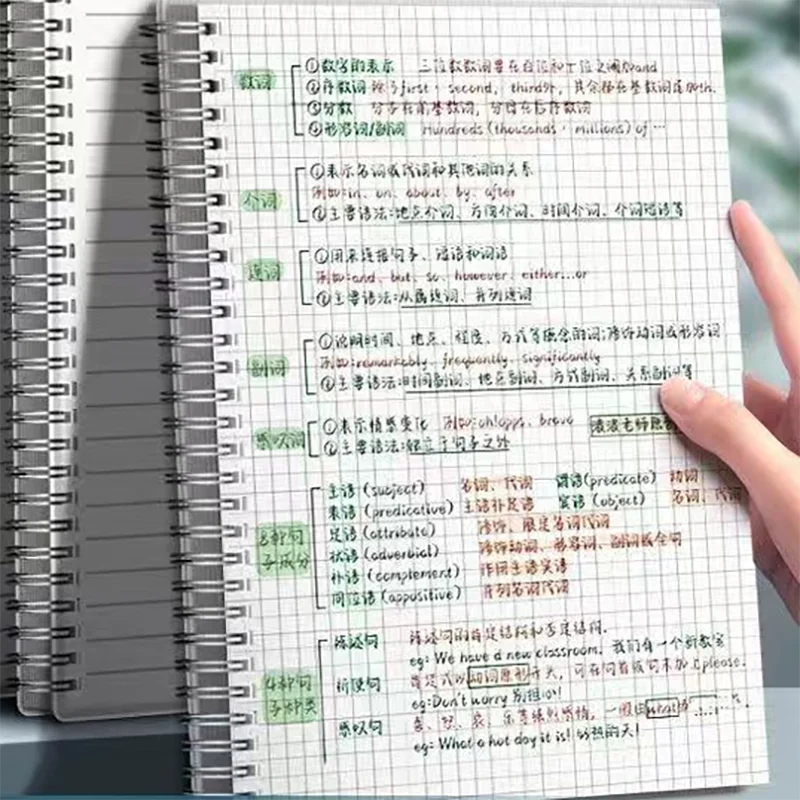 数词
①数字的表示 三位数数词要在百位和十位之间加and
②序数词 除了first、second, third外, 其余都在基数词后加th.
③分数 分子在前基数词, 分母在后序数词
④形容词/副词 Hundreds (thousands、millions) of …
介词
①表示名词或代词和其他词的关系
例如:in、on、about、by、after
②主要语法:地点介词、方向介词、时间介词、介词短语等
连词
①用来连接句子、短语和词语
例如:and、but、so、however、either...or
②主要语法:从属连词、并列连词
副词
①说明时间、地点、程度、方式等概念的词;修饰动词或形容词
例如:remarkably、frequently、significantly
②主要语法:时间副词、地点副词、方式副词、关系副词等
感叹词
①表示情感变化 例如:oh!opps、bravo
②主要语法:独立于句子之外
老师原创
8种句子成分
主语 (subject) 名词、代词 谓语(predicate) 动词
表语 (predicative) 主语补足语 宾语 (object) 名词、代词
定语 (attribute) 修饰、限定名词代词
状语 (adverbial) 修饰动词、形容词、副词或全句
补语 (complement) 作用主语宾语
同位语 (appositive) 并列名词代词
4种句子种类
陈述句 陈述句的肯定结构和否定结构.
eg: We have a new classroom. 我们有一个新教室
祈使句 肯定式以动词原形开头, 可在句首或句末加上please.
eg:Don't worry 别担心!
感叹句 喜、怒、哀、乐等强烈感情, 一般由what或
eg: What a hot day it is! 好热的天!